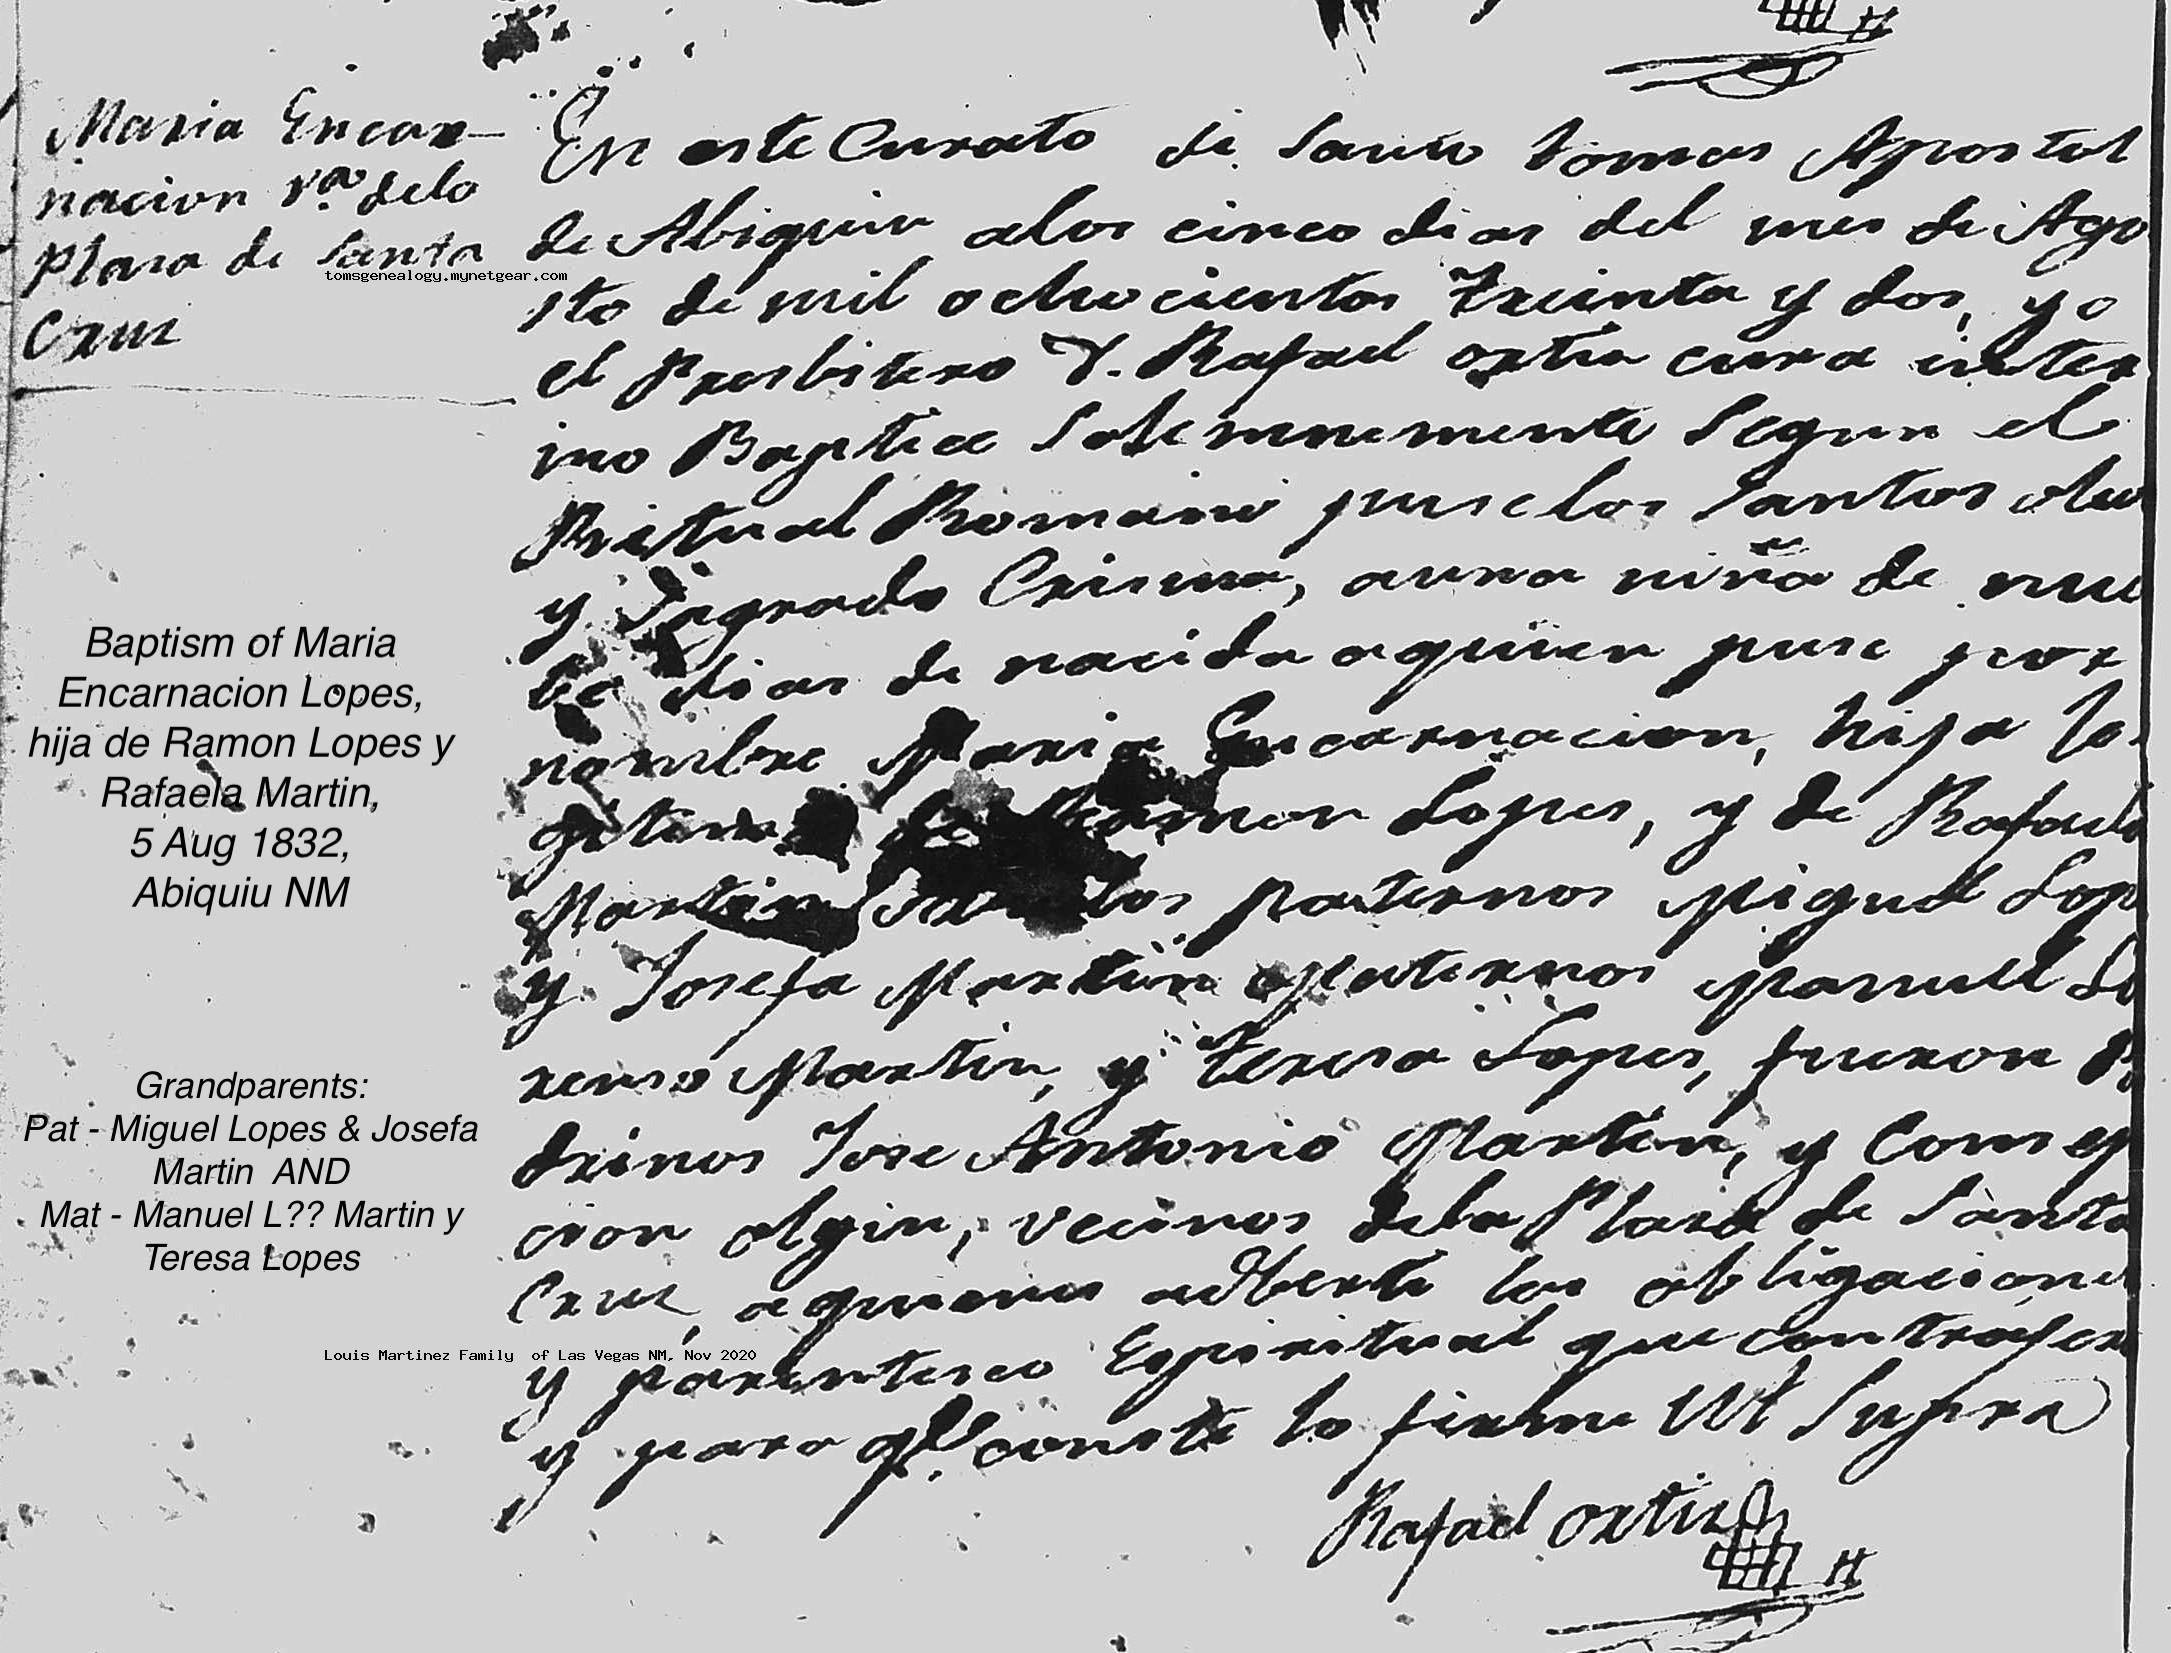 Maria Encar-
nacion va. dela
Plasa de Santa
Crus
tomsgenealogy.mynetgear.com
En este Curato de Santo Tomas Apostol
de Abiquiu alos cinco dias del mes de Ago
sto de mil ochocientos treinta y dos, yo
el Presbitero D. Rafael Ortis cura inter
ino Baptice Solemnemente Segun el
Ritual Romano puse los Santos oleo
y Sagrado Crisma, auna niña de nue
be dias de nacida aquien puse por
nombre Maria Encarnacion, hija le
gitima de Ramon Lopes, y de Rafaela
Martin paternos Miguel Lop
y Josefa Martin Maternos Manuel Lo
renso Martin, y Teresa Lopes, fueron P
drinos Jose Antonio Martin, y Consep
cion olgin, vecinos dela Plasa de Santa
Crus, aquienes adberti las obligacione
y parentesco Espiritual que contrajer
y para qe. conste lo firme Ut Supra
Rafael Ortiz
Baptism of Maria
Encarnacion Lopes,
hija de Ramon Lopes y
Rafaela Martin,
5 Aug 1832,
Abiquiu NM
Grandparents:
Pat - Miguel Lopes & Josefa
Martin AND
Mat - Manuel L?? Martin y
Teresa Lopes
Louis Martinez Family of Las Vegas NM, Nov 2020